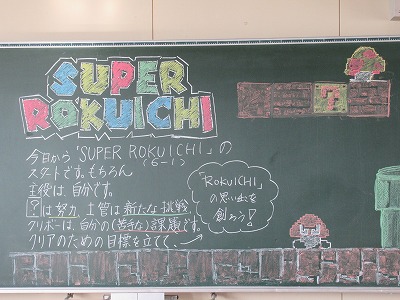 SUPER
ROKUICHI
今日から「SUPER ROKUICHI」の
(6-1)
スタートです。もちろん
主役は、自分です。
?は努力、土管は新たな挑戦、
クリボーは、自分の(苦手な)課題です。
クリアのための目標を立てて、
「ROKUICHI」
の思い出を
創ろう!
?